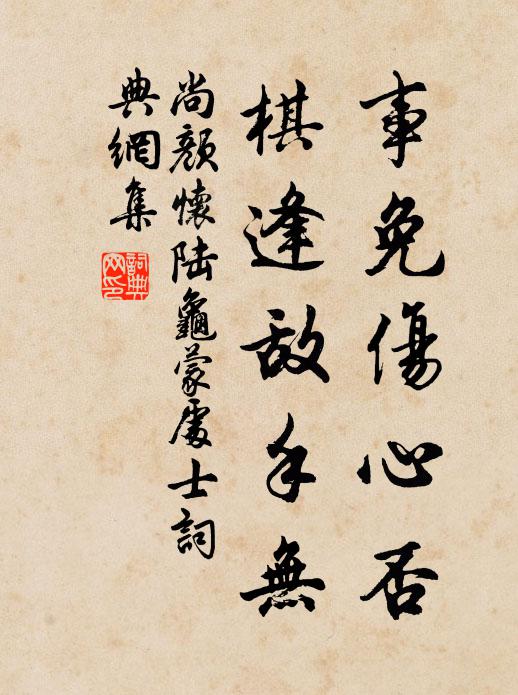 事免傷心否
棋逢敵手無
尚顏懷陸龜蒙處士詞
典網集
詞典
网印